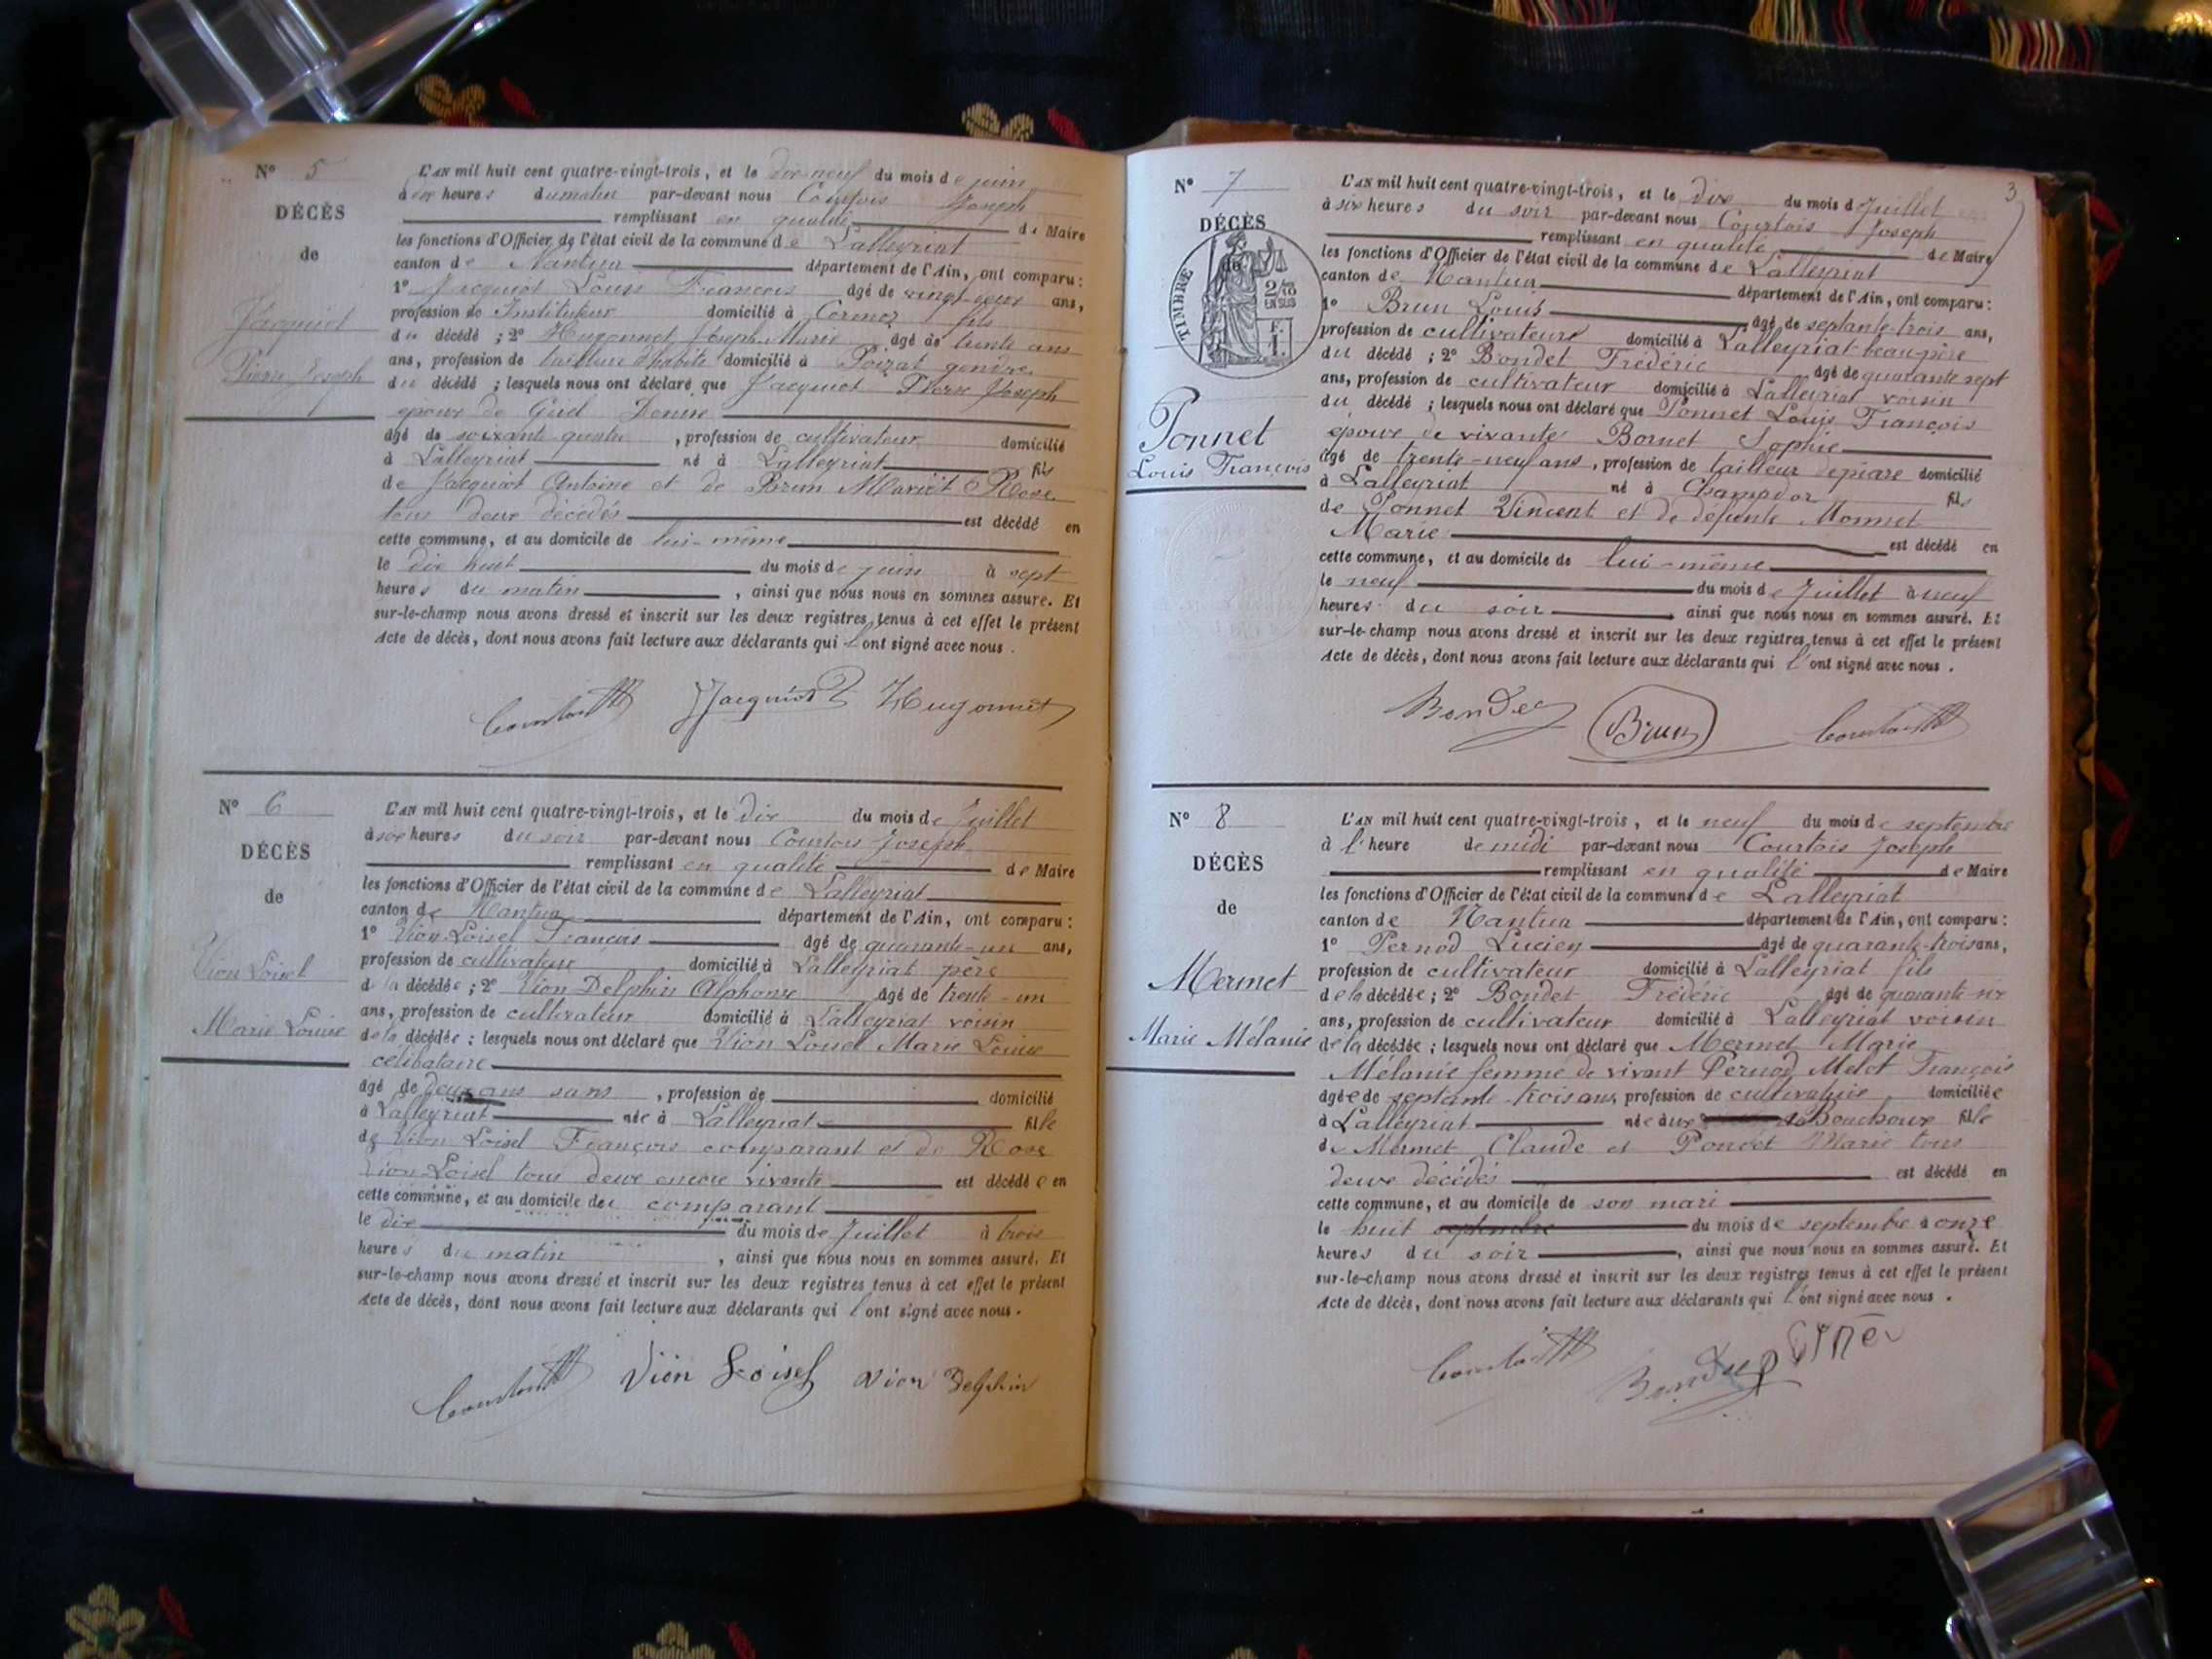 N° 5
DÉCÈS
de
Jacquiot
Pierre Joseph
L'AN mil huit cent quatre-vingt-trois, et le dix-neuf du mois de juin
à dix heures du matin par-devant nous Courtois Joseph
remplissant en qualité de Maire
les fonctions d'Officier de l'état civil de la commune de Lalleyriat
canton de Nantua département de l'Ain, ont comparu :
1° Jacquiot Louis François âgé de vingt ans,
profession de Instituteur domicilié à Cormoz fils
du décédé ; 2° Hugonnet Joseph Marie âgé de trente ans
ans, profession de tailleur d'habits domicilié à Poizat gendre
du décédé ; lesquels nous ont déclaré que Jacquiot Pierre Joseph
époux de Girel Denise
âgé de soixante , profession de cultivateur domicilié
à Lalleyriat né à Lalleyriat fils
de Jacquiot Antoine et de Brun Mariet Rose
tous deux décédés est décédé en
cette commune, et au domicile de lui-même
le dix huit du mois de juin à sept
heures du matin , ainsi que nous nous en sommes assuré. Et
sur-le-champ nous avons dressé et inscrit sur les deux registres tenus à cet effet le présent
Acte de décès, dont nous avons fait lecture aux déclarants qui l'ont signé avec nous .
Courtois Jacquiot Hugonnet
N° 6
DÉCÈS
de
Vion Loisel
Marie Louise
L'AN mil huit cent quatre-vingt-trois, et le dix du mois de Juillet
à six heures du soir par-devant nous Courtois Joseph
remplissant en qualité de Maire
les fonctions d'Officier de l'état civil de la commune de Lalleyriat
canton de Nantua département de l'Ain, ont comparu :
1° Vion-Loisel François âgé de quarante-un ans,
profession de cultivateur domicilié à Lalleyriat père
de la décédée ; 2° Vion Delphin Alphonse âgé de trente-un
ans, profession de cultivateur domicilié à Lalleyriat voisin
de la décédée ; lesquels nous ont déclaré que Vion Loisel Marie Louise
célibataire
âgé de deux ans sans , profession de domicilié
à Lalleyriat née à Lalleyriat fille
de Vion Loisel François comparant et de Rose
Vion-Loisel tous deux encore vivants est décédée en
cette commune, et au domicile du comparant
le dix du mois de Juillet à trois
heures du matin , ainsi que nous nous en sommes assuré. Et
sur-le-champ nous avons dressé et inscrit sur les deux registres tenus à cet effet le présent
Acte de décès, dont nous avons fait lecture aux déclarants qui l'ont signé avec nous .
Courtois Vion Loisel Vion Delphin
3
N° 7
DÉCÈS
de
TIMBRE
2/10 EN SUS
1 F.
Ponnet
Louis François
L'AN mil huit cent quatre-vingt-trois, et le dix du mois d Juillet
à six heures du soir par-devant nous Courtois Joseph
remplissant en qualité de Maire
les fonctions d'Officier de l'état civil de la commune de Lalleyriat
canton de Nantua département de l'Ain, ont comparu :
1° Brun Louis âgé de septante-trois ans,
profession de cultivateur domicilié à Lalleyriat beau-père
du décédé ; 2° Bondet Frédéric âgé de quarante sept
ans, profession de cultivateur domicilié à Lalleyriat voisin
du décédé ; lesquels nous ont déclaré que Ponnet Louis François
époux de vivante Bornet Sophie
âgé de trente-neuf ans , profession de tailleur de piare domicilié
à Lalleyriat né à Champdor fils
de Ponnet Vincent et de défunte Monnet
Marie est décédé en
cette commune, et au domicile de lui-même
le neuf du mois de Juillet à neuf
heures du soir ainsi que nous nous en sommes assuré. Et
sur-le-champ nous avons dressé et inscrit sur les deux registres tenus à cet effet le présent
Acte de décès, dont nous avons fait lecture aux déclarants qui l'ont signé avec nous .
Bondet Brun Courtois
N° 8
DÉCÈS
de
Mermet
Marie Mélanie
L'AN mil huit cent quatre-vingt-trois, et le neuf du mois de septembre
à l'heure de midi par-devant nous Courtois Joseph
remplissant en qualité de Maire
les fonctions d'Officier de l'état civil de la commune de Lalleyriat
canton de Nantua département de l'Ain, ont comparu :
1° Pernod Lucien âgé de quarante-trois ans,
profession de cultivateur domicilié à Lalleyriat fils
de la décédée ; 2° Bondet Frédéric âgé de quarante-six
ans, profession de cultivateur domicilié à Lalleyriat voisin
de la décédée ; lesquels nous ont déclaré que Mermet Marie
Mélanie femme de vivant Pernod Melot François
âgée de septante-trois ans, profession de cultivatrice domiciliée
à Lalleyriat née aux Bouchoux fille
de Mermet Claude et Poncet Marie tous
deux décédés est décédé en
cette commune, et au domicile de son mari
le huit septembre du mois de septembre à onze
heures du soir , ainsi que nous nous en sommes assuré. Et
sur-le-champ nous avons dressé et inscrit sur les deux registres tenus à cet effet le présent
Acte de décès, dont nous avons fait lecture aux déclarants qui l'ont signé avec nous .
Courtois Bondet